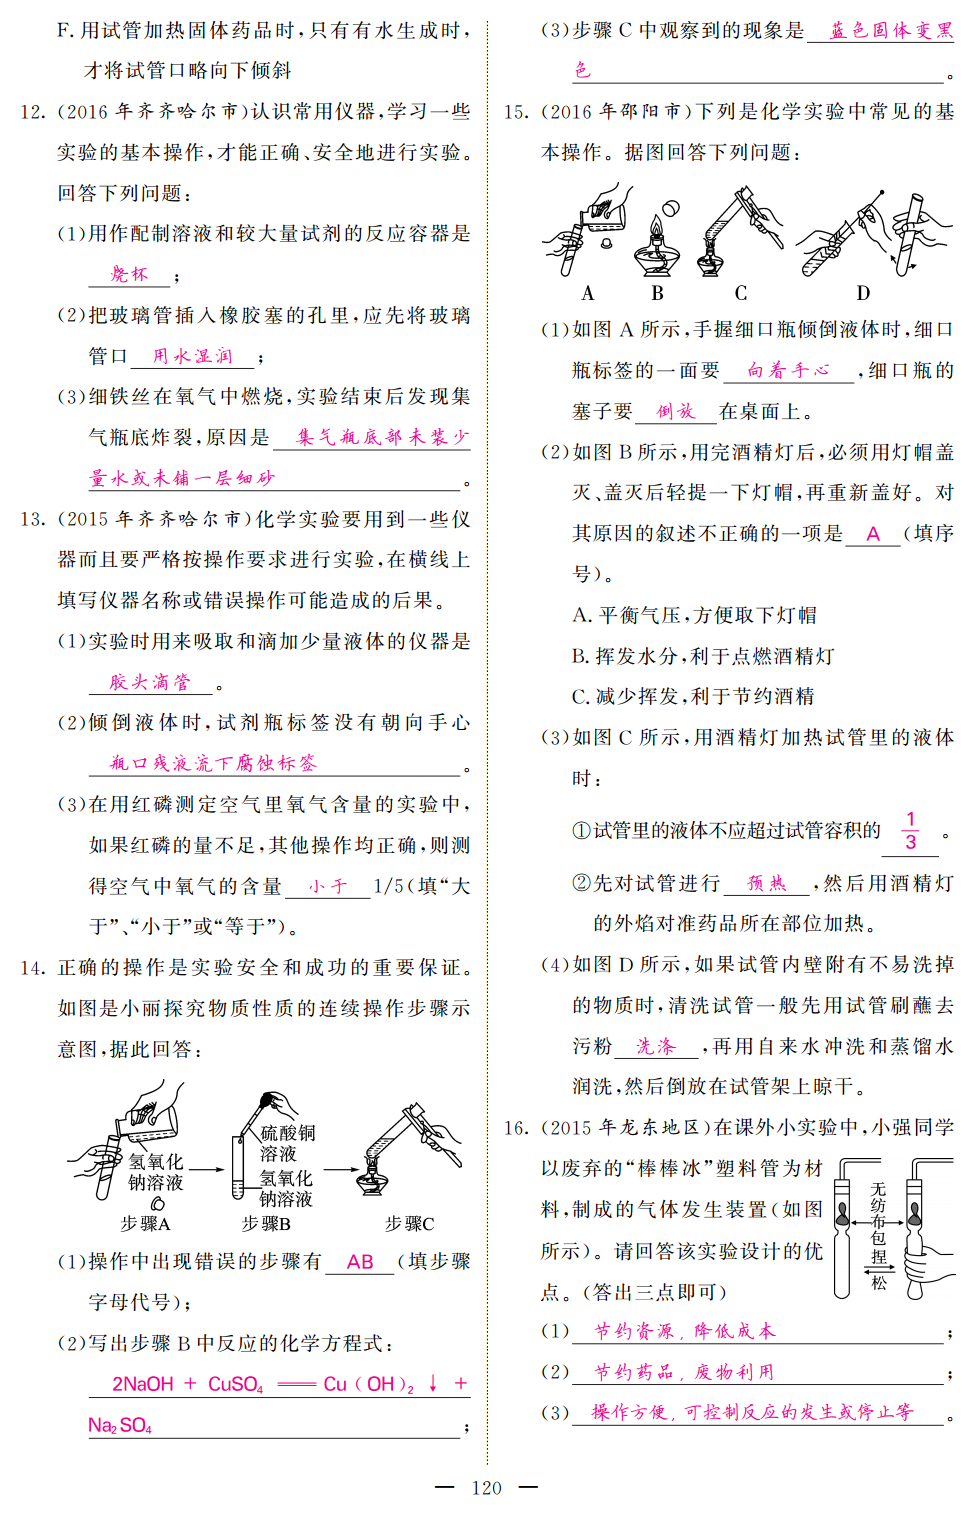 F. 用试管加热固体药品时,只有有水生成时,
才将试管口略向下倾斜
12. (2016 年齐齐哈尔市)认识常用仪器,学习一些
实验的基本操作,才能正确、安全地进行实验。
回答下列问题:
(1)用作配制溶液和较大量试剂的反应容器是
烧杯 ;
(2)把玻璃管插入橡胶塞的孔里,应先将玻璃
管口 用水湿润 ;
(3)细铁丝在氧气中燃烧,实验结束后发现集
气瓶底炸裂,原因是 集气瓶底部未装少
量水或未铺一层细砂 。
13. (2015 年齐齐哈尔市)化学实验要用到一些仪
器而且要严格按操作要求进行实验,在横线上
填写仪器名称或错误操作可能造成的后果。
(1)实验时用来吸取和滴加少量液体的仪器是
胶头滴管 。
(2)倾倒液体时,试剂瓶标签没有朝向手心
瓶口残液流下腐蚀标签 。
(3)在用红磷测定空气里氧气含量的实验中,
如果红磷的量不足,其他操作均正确,则测
得空气中氧气的含量 小于 1/5(填“大
于”、“小于”或“等于”)。
14. 正确的操作是实验安全和成功的重要保证。
如图是小丽探究物质性质的连续操作步骤示
意图,据此回答:
氢氧化
钠溶液
步骤A
硫酸铜
溶液
氢氧化
钠溶液
步骤B
步骤C
(1)操作中出现错误的步骤有 AB (填步骤
字母代号);
(2)写出步骤 B 中反应的化学方程式:
2NaOH + CuSO₄ ═══ Cu(OH)₂ ↓ +
Na₂SO₄ ;
(3)步骤 C 中观察到的现象是 蓝色固体变黑
色 。
15. (2016 年邵阳市)下列是化学实验中常见的基
本操作。据图回答下列问题:
A B C D
(1)如图 A 所示,手握细口瓶倾倒液体时,细口
瓶标签的一面要 向着手心 ,细口瓶的
塞子要 倒放 在桌面上。
(2)如图 B 所示,用完酒精灯后,必须用灯帽盖
灭、盖灭后轻提一下灯帽,再重新盖好。对
其原因的叙述不正确的一项是 A (填序
号)。
A. 平衡气压,方便取下灯帽
B. 挥发水分,利于点燃酒精灯
C. 减少挥发,利于节约酒精
(3)如图 C 所示,用酒精灯加热试管里的液体
时:
①试管里的液体不应超过试管容积的 1/3 。
②先对试管进行 预热 ,然后用酒精灯
的外焰对准药品所在部位加热。
(4)如图 D 所示,如果试管内壁附有不易洗掉
的物质时,清洗试管一般先用试管刷蘸去
污粉 洗涤 ,再用自来水冲洗和蒸馏水
润洗,然后倒放在试管架上晾干。
16. (2015 年龙东地区)在课外小实验中,小强同学
以废弃的“棒棒冰”塑料管为材
料,制成的气体发生装置(如图
所示)。请回答该实验设计的优
点。(答出三点即可)
无纺布包
捏
松
(1) 节约资源,降低成本 ;
(2) 节约药品,废物利用 ;
(3) 操作方便,可控制反应的发生或停止等 。
— 120 —